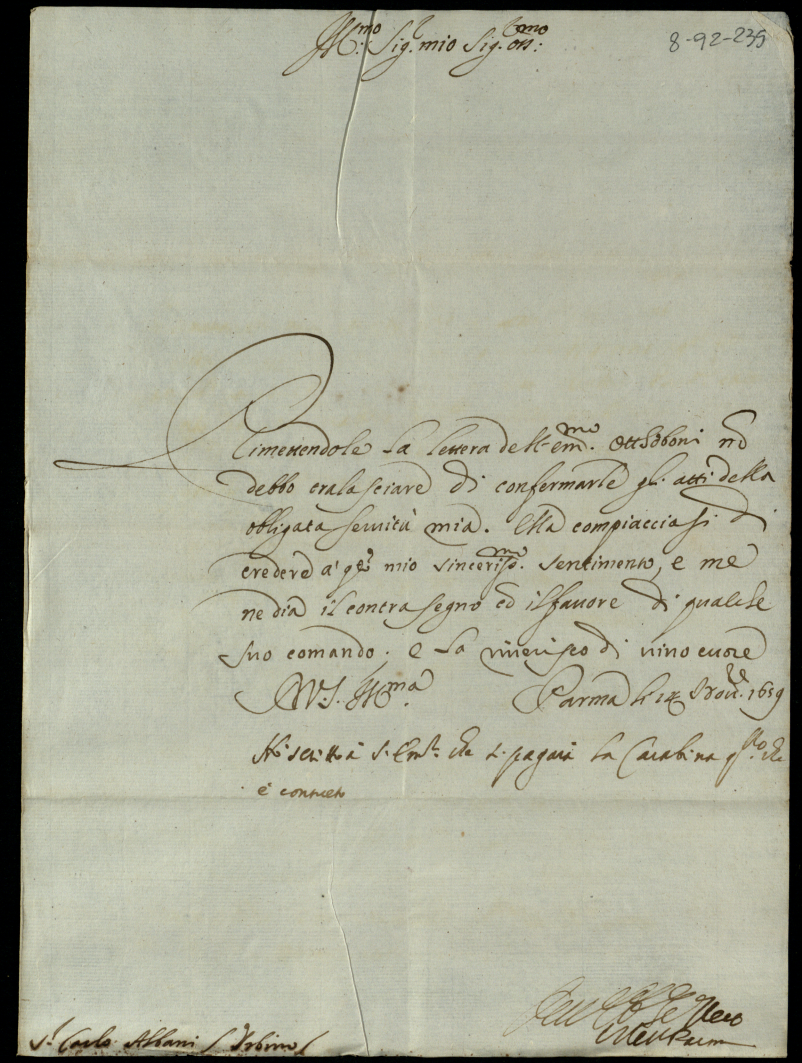 Ill:mo Sig.r mio Sig. oss:mo
8-92-235
Rimettendole la lettera dell'em.mo Ottoboni nō
debbo tralasciare di confermarle gl. atti della
obligata servitù mia. Ella compiacciasi di
credere a' q.to mio sinceriss.mo sentimento, e me
ne dia il contrasegno ed il favore di qualche
suo comando. e la riverisco di vivo cuore
D V. S. Ill.ma Parma li 14 Nov.re 1659
Hò scritto à S. Em.a che si pagarà la Carabina q.sto che
è
S.r Carlo Albani / Urbino /